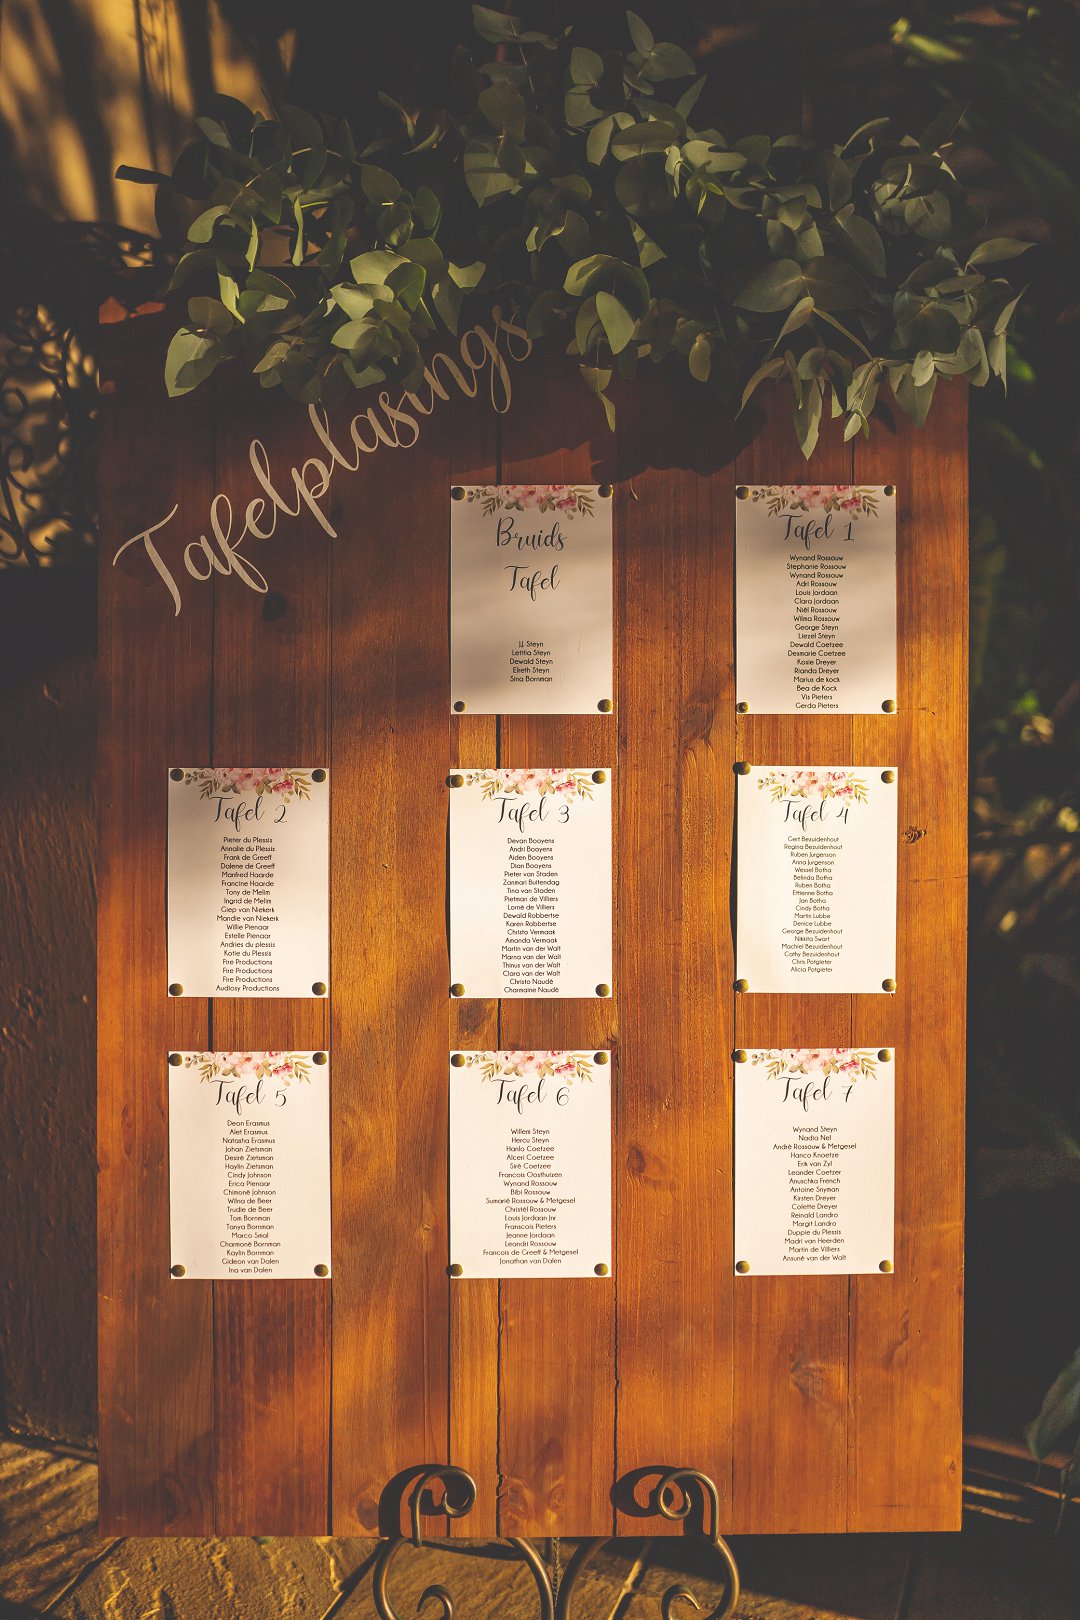 Tafelplasings
Bruids
Tafel
JJ Steyn
Letitia Steyn
Dewald Steyn
Elreth Steyn
Sina Bornman
Tafel 1
Wynand Rossouw
Stephanie Rossouw
Wynand Rossouw
Adri Rossouw
Louis Jordaan
Clara Jordaan
Niël Rossouw
Wilma Rossouw
George Steyn
Liezel Steyn
Dewald Coetzee
Desmarie Coetzee
Kosie Dreyer
Rianda Dreyer
Marius de kock
Bea de Kock
Vis Pieters
Gerda Pieters
Tafel 2
Pieter du Plessis
Annalie du Plessis
Frank de Greeff
Dalene de Greeff
Manfred Haarde
Francine Haarde
Tony de Melim
Ingrid de Melim
Giep van Niekerk
Mandie van Niekerk
Willie Pienaar
Estelle Pienaar
Andries du plessis
Kotie du Plessis
Fire Productions
Fire Productions
Fire Productions
Audiosy Productions
Tafel 3
Devan Booyens
Andri Booyens
Aiden Booyens
Dian Booyens
Pieter van Staden
Zanmari Buitendag
Tina van Staden
Pietman de Villiers
Lorné de Villiers
Dewald Robbertse
Karen Robbertse
Christo Vermaak
Amanda Vermaak
Martin van der Walt
Marna van der Walt
Thinus van der Walt
Clara van der Walt
Christo Naudé
Charmaine Naudé
Tafel 4
Gert Bezuidenhout
Regina Bezuidenhout
Ruben Jurgenson
Anna Jurgenson
Wessel Botha
Belinda Botha
Ruben Botha
Ettienne Botha
Jan Botha
Cindy Botha
Martin Lubbe
Denice Lubbe
George Bezuidenhout
Nikkita Swart
Machiel Bezuidenhout
Cathy Bezuidenhout
Chris Potgieter
Alicia Potgieter
Tafel 5
Deon Erasmus
Alet Erasmus
Natasha Erasmus
Johan Zietsman
Desiré Zietsman
Haylin Zietsman
Cindy Johnson
Erica Pienaar
Chimoné Johnson
Wilna de Beer
Trudie de Beer
Tom Bornman
Tanya Bornman
Marco Smal
Charmoné Bornman
Kaylin Bornman
Gideon van Dalen
Ina van Dalen
Tafel 6
Willem Steyn
Hercu Steyn
Hanlo Coetzee
Alceri Coetzee
Siré Coetzee
Francois Oosthuizen
Wynand Rossouw
Bibi Rossouw
Sumarié Rossouw & Metgesel
Christél Rossouw
Louis Jordaan Jnr
Franscois Pieters
Jeanne Jordaan
Leandri Rossouw
Francois de Greeff & Metgesel
Jonathan van Dalen
Tafel 7
Wynand Steyn
Nadia Nel
André Rossouw & Metgesel
Hanco Knoetze
Erik van Zyl
Leander Coetzer
Anuschka French
Antoine Snyman
Kirsten Dreyer
Colette Dreyer
Reinald Landro
Margit Landro
Duppie du Plessis
Madri van Heerden
Martin de Villiers
Ansuné van der Walt